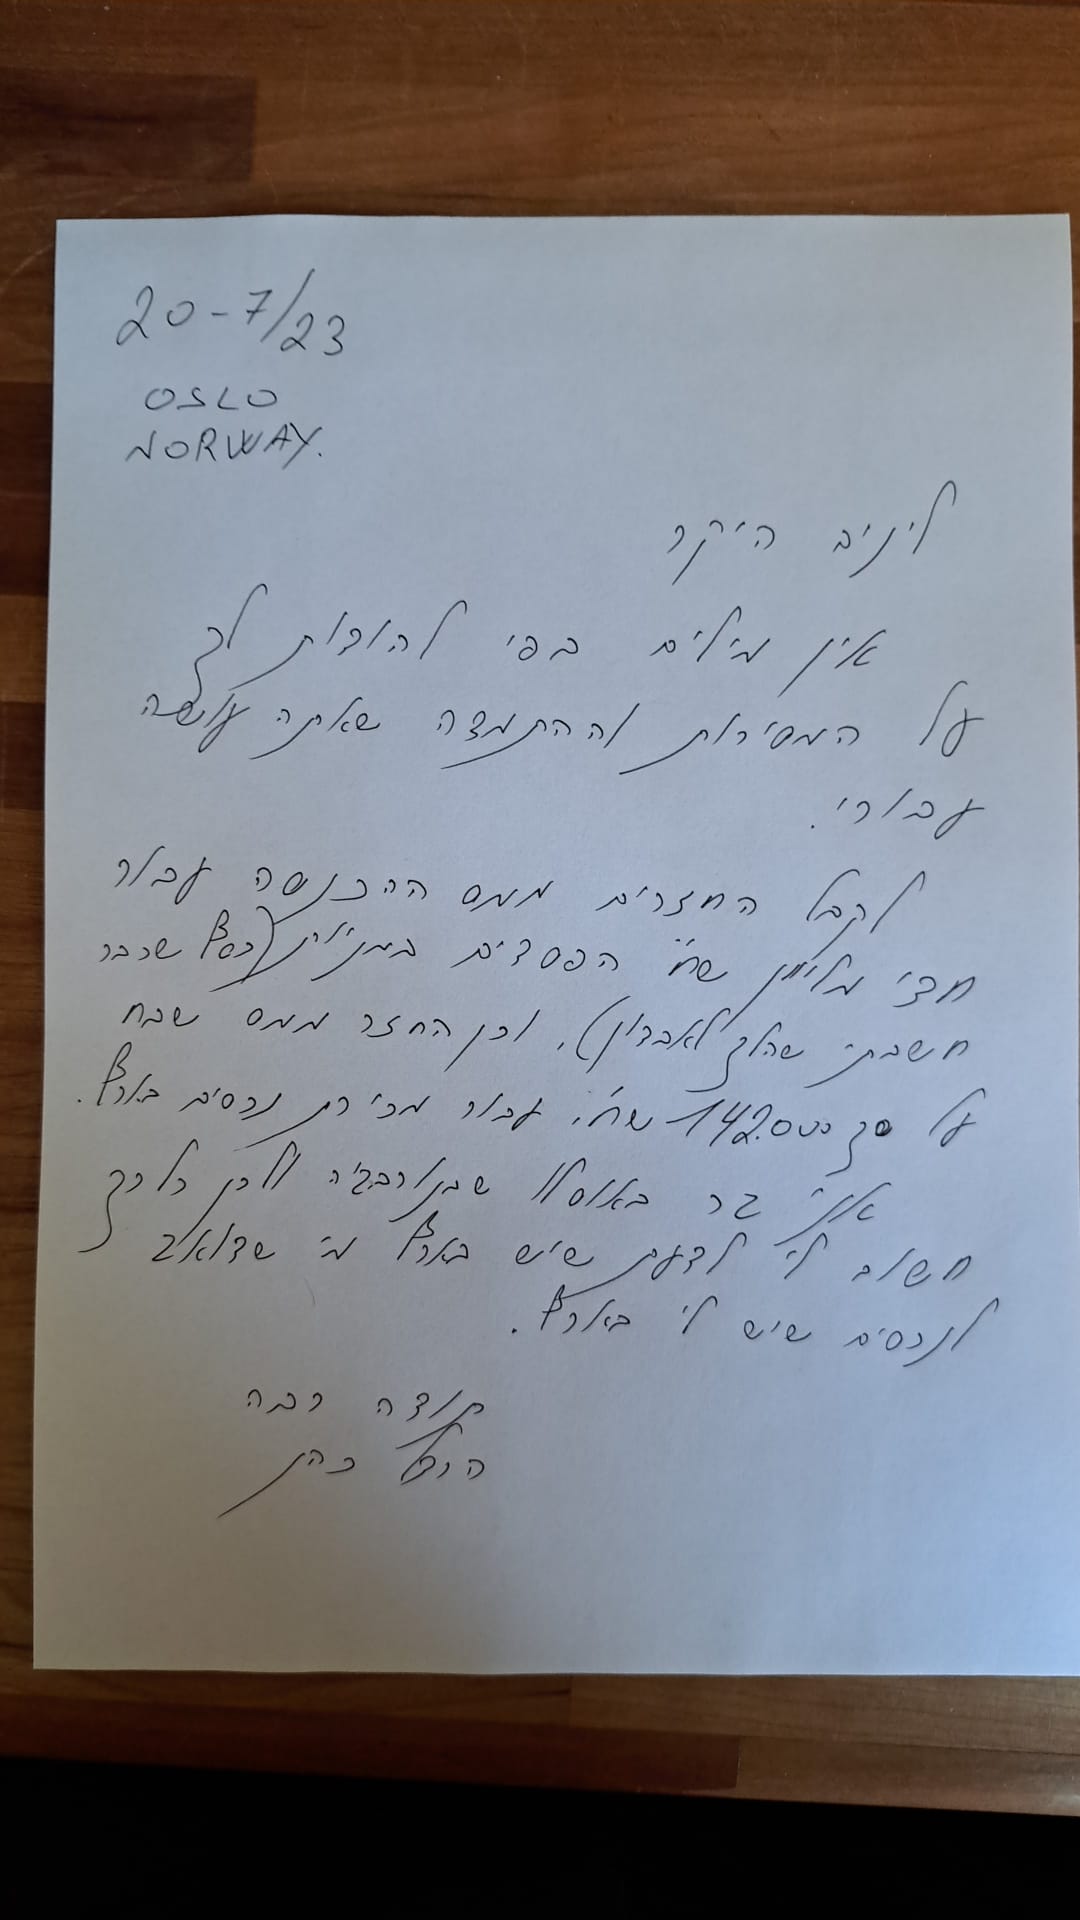 20-7/23
OSLO
NORWAY.
ליניב היקר
אין מילים בפי להודות לך
על המסירות וההתמדה שאתה עושה
עבורי.
לקבל החזרים ממס ההכנסה עבור
חצי מליון ש"ח הפסדים במניות (כסף שכבר
חשבתי שהלך לאבדון), וכן החזר ממס שבח
על סך 142.000 ש"ח, עבור מכירת נכסים בארץ.
אני גר באוסלו שבנורבגיה ולכן כל כך
חשוב לי לדעת שיש בארץ מי שדואג
לנכסים שיש לי בארץ.
תודה רבה
הרצל כהן